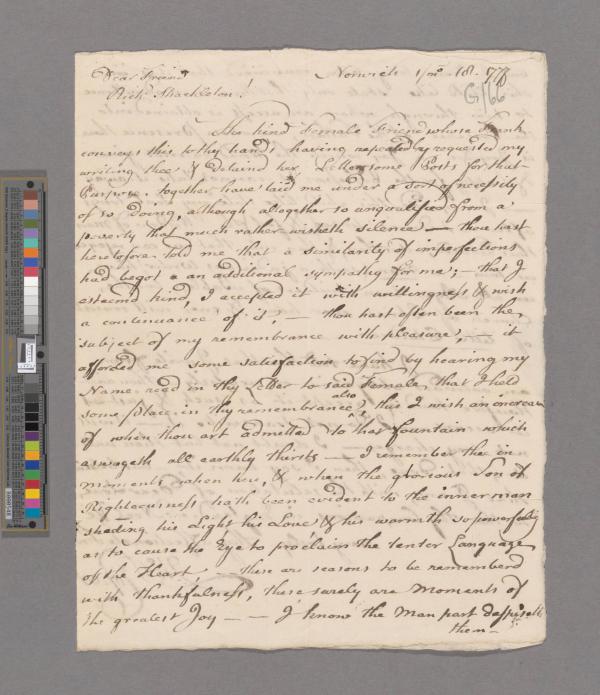 Dear Friend Norwich 1/mo 18. 77
Richd. Shackleton! G/66
This kind Female Friend whose Frank
conveys this to thy hands having repeatedly requested my
writing thee & detain'd her Letter some Posts for that
Purpose, together have laid me under a sort of necessity
of so doing, although altogether so unqualified from a
poverty that much rather wisheth silence — thou hast
heretofore told me that a similarity of imperfections
had begot an additional sympathy for me; — that I
esteem'd kind, I accepted it with willingness & wish
a continuance of it, — thou hast often been the
subject of my remembrance with pleasure, — it
afforded me some satisfaction to find by hearing my
Name read in thy Letter to said Female, that I held
some place in thy remembrance also, this I wish an increase
of when thou art admitted to that fountain which
aswageth all earthly thirsts — I remember thee in
moments when here, & when the glorious Son of
Righteousness hath been evident to the inner man
sheding his Light, his Love & his warmth so powerfully
as to cause the Eye to proclaim the tenter Language
of the Heart — these are seasons to be remember'd
with thankfulness, these surely are Moments of
the greatest Joy — — I know the Man part despiseth
them —